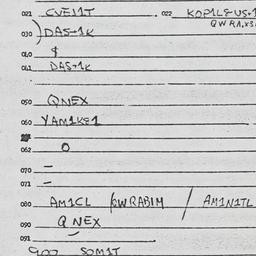 021 CVEJ1T 022 KOP1L&US-1
QWRA,X3
030 DAS-1K
040 $
041 DAS-1K
050 QNEX
060 YAM1KE1
062 O
070 —
071 —
080 AM1CL QWRABIM / AM1N1TL
090 QNEX
091 —
902 SOM1T